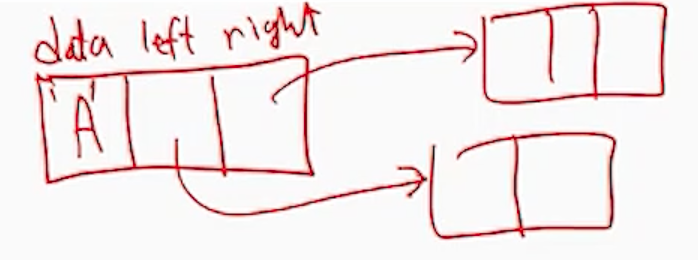 data left right
'A'